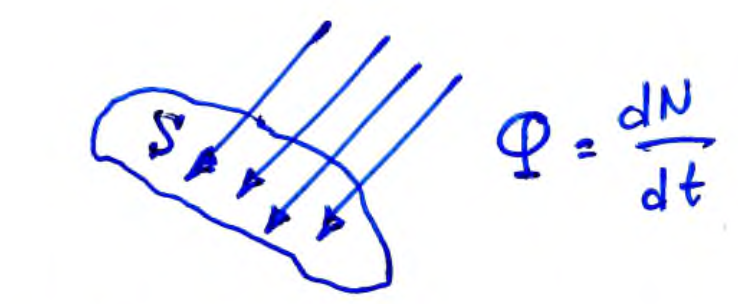 S
Φ = dN/dt